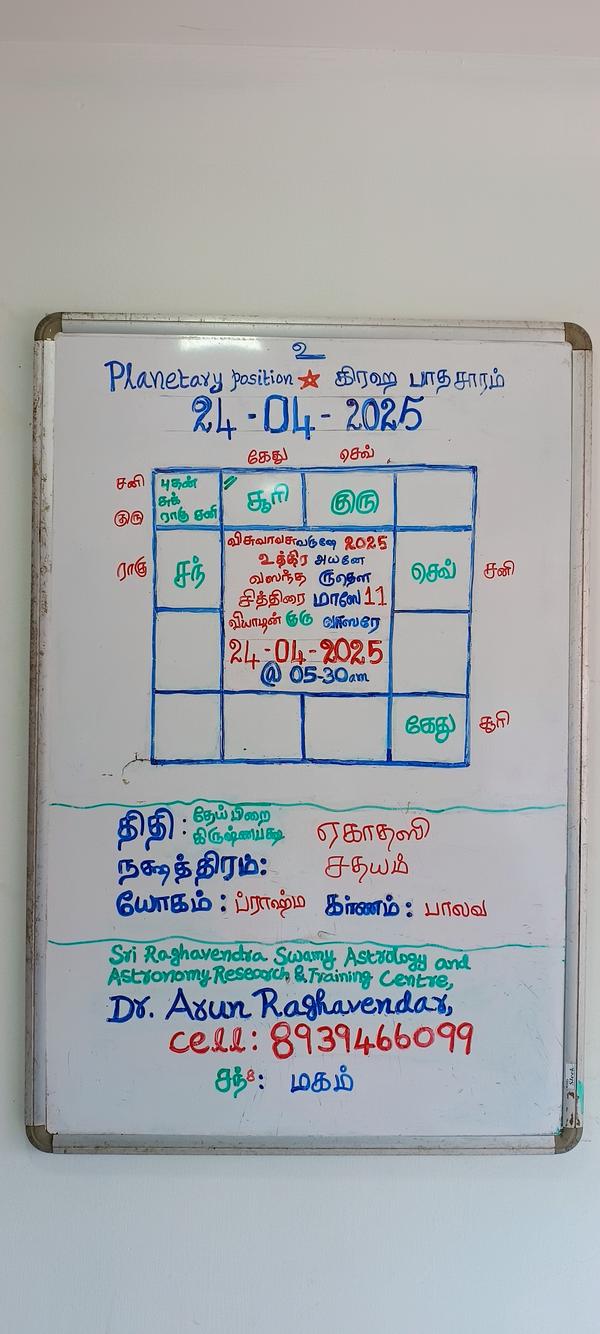 உ
Planetary position கிரஹ பாதசாரம்
24-04-2025
கேது செவ்
சனி புதன் சுக் ராகு சனி சூரி குரு
குரு
விசுவாவசு வருஷே 2025
உத்திர அயனே
ராகு சந் வஸந்த ருதௌ செவ் சனி
சித்திரை மாஸே 11
வியாழன் குரு வாஸரே
24-04-2025
@ 05-30am
கேது சூரி
திதி: தேய்பிறை கிருஷ்ணபக்ஷ ஏகாதஸி
நக்ஷத்திரம்: சதயம்
யோகம்: ப்ராஹ்ம கர்ணம்: பாலவ
Sri Raghavendra Swamy Astrology and
Astronomy Research & Training Centre,
Dr. Arun Raghavendar,
Cell: 8939466099
சந்8: மகம்